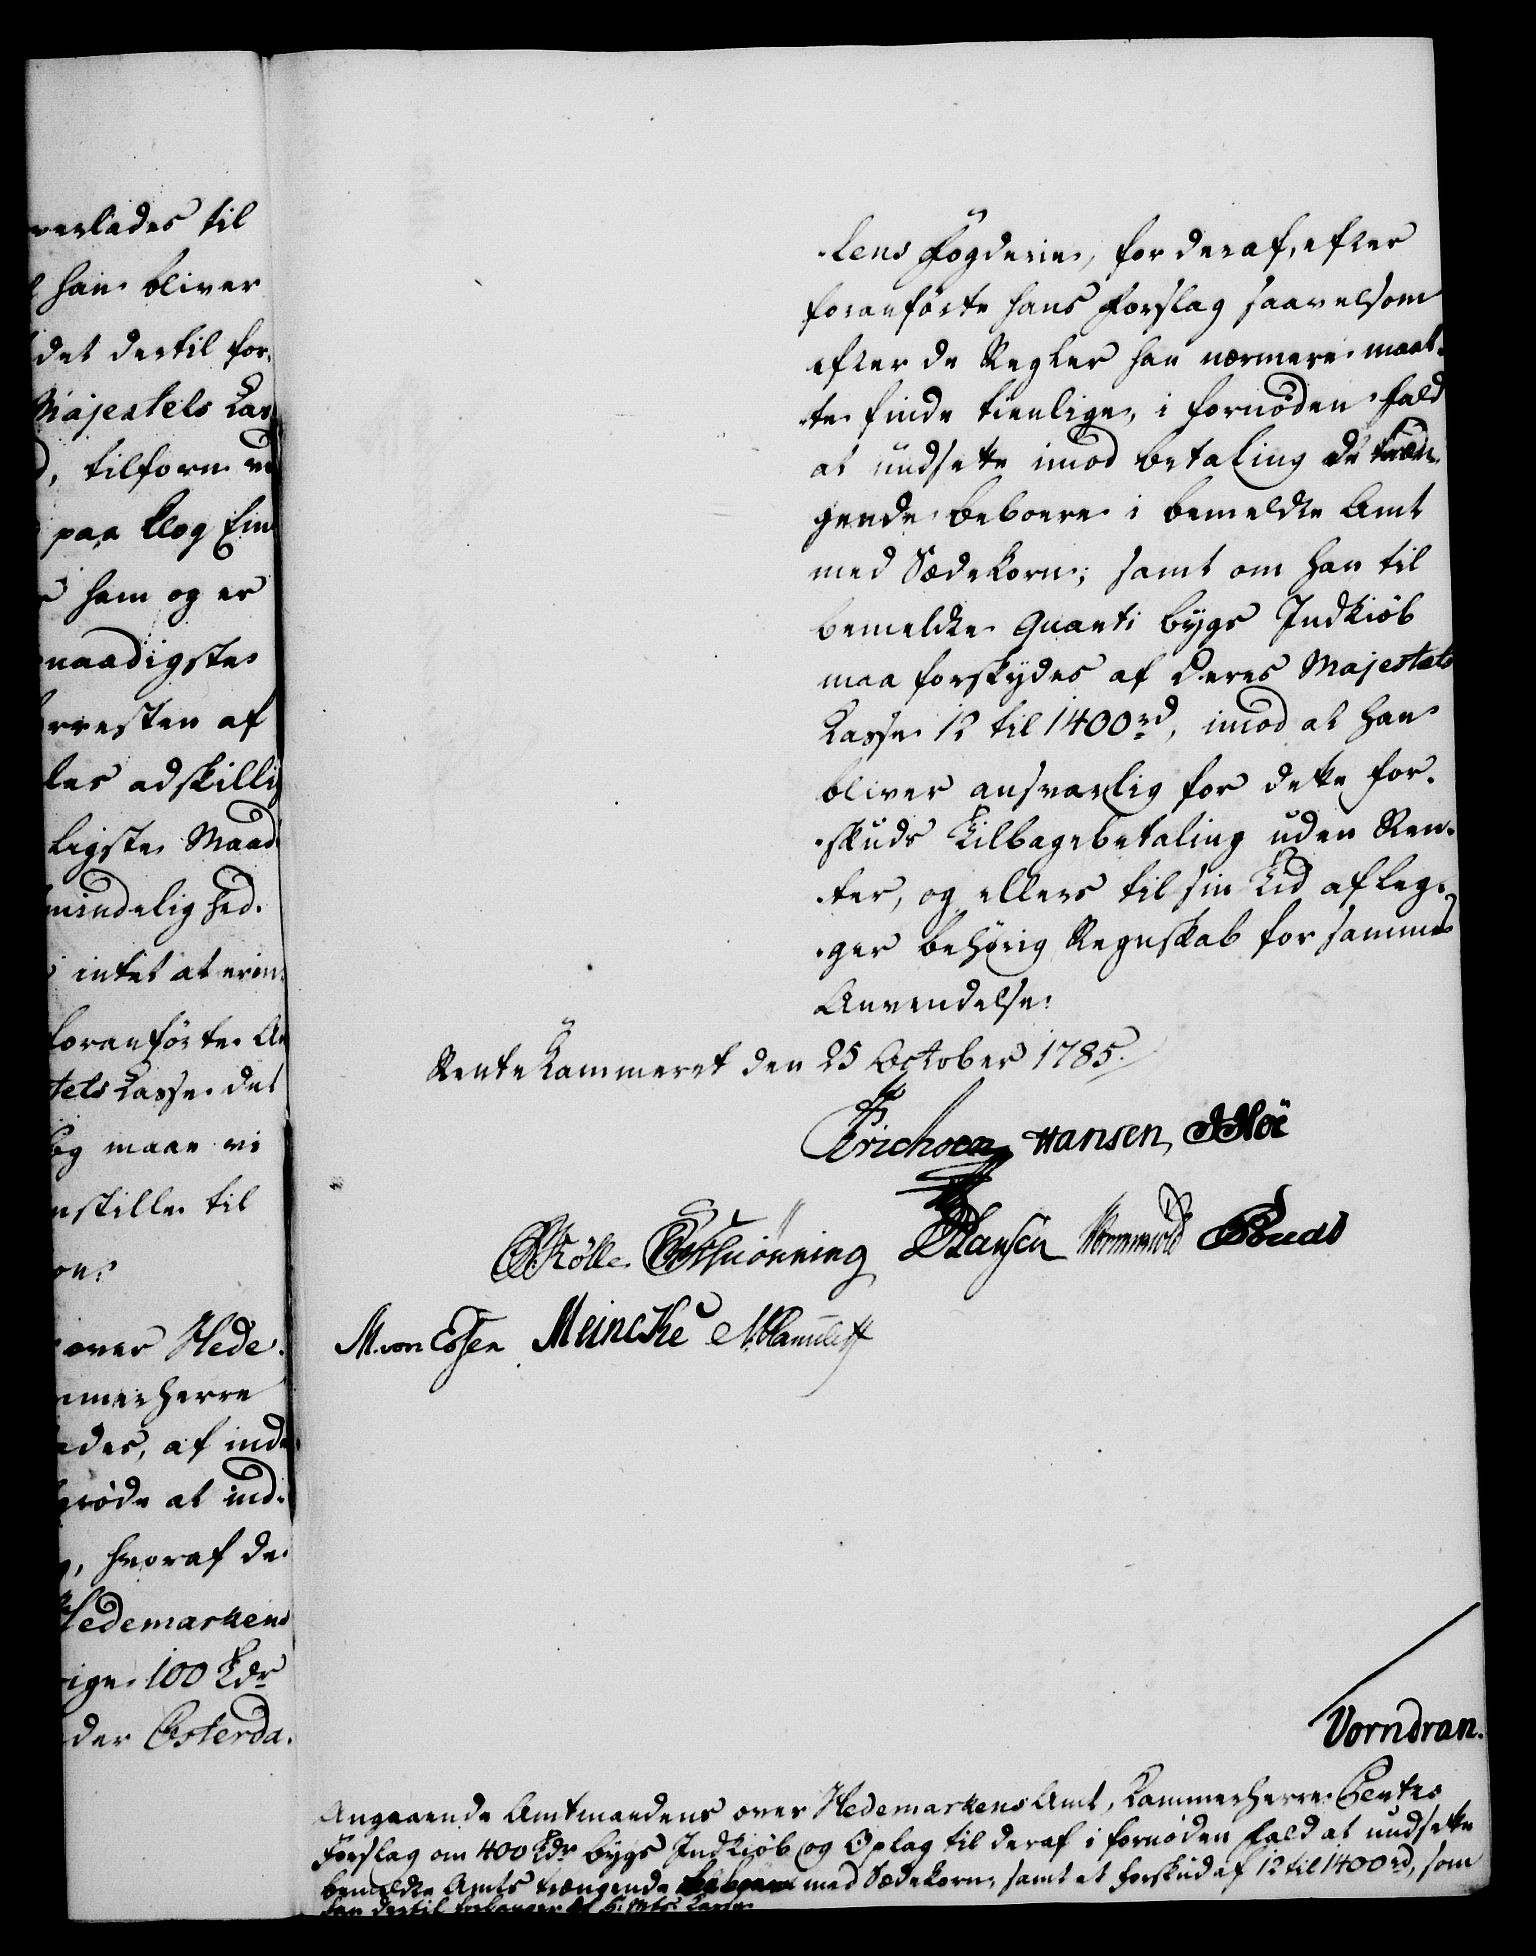 verlades til
han bliver
det dertil for-
Majestets Cas
tilforn
paa Elog Em
ham og er
naadigste
resten af
les adskillig
ligste Maad
mindelighed.
intet at erin-
foranførte An
tets Casse det
og maae vi
nstille til
on.
over Hede-
mmerherre
ades, af ind
grøde at ind-
, hvoraf de
Hedemarkens
ige 100 Tdr
der Østerda-
-lens Fogderie, for deraf, efter
foranførte hans Forslag saavelsom
efter de Regler han nærmere maat-
-te finde tienlige, i fornøden Fald
at undsette imod betaling de træn-
gende beboere i bemeldte Amt
med Sædekorn; samt om han til
bemeldte Quanti bygs Indkiøb
maa forskydes af Deres Majestæts
Casse 12 til 1400 rd, imod at han
bliver ansvarlig for dette for-
-skuds Tilbagebetaling uden Ren-
-ter, og ellers til sin Tid afleg-
-ger behørig Regnskab for sammes
Anvendelse.
Rentekammeret den 25 October 1785.
Erichsen Hansen
Schiønning Hansen Wormskiold
M. von Essen Meincke
Vorndran.
Angaaende Amtmandens over Hedemarkens Amt, Kammerherre Bentzs
Forslag om 400 Tdr bygs Indkiøb og Oplag til deraf i fornøden Fald at undsette
bemeldte Amts trængende beboere med Sædekorn, samt et Forskud af 12 til 1400 rd, som
han dertil forlanger af H: Mts: Casse.